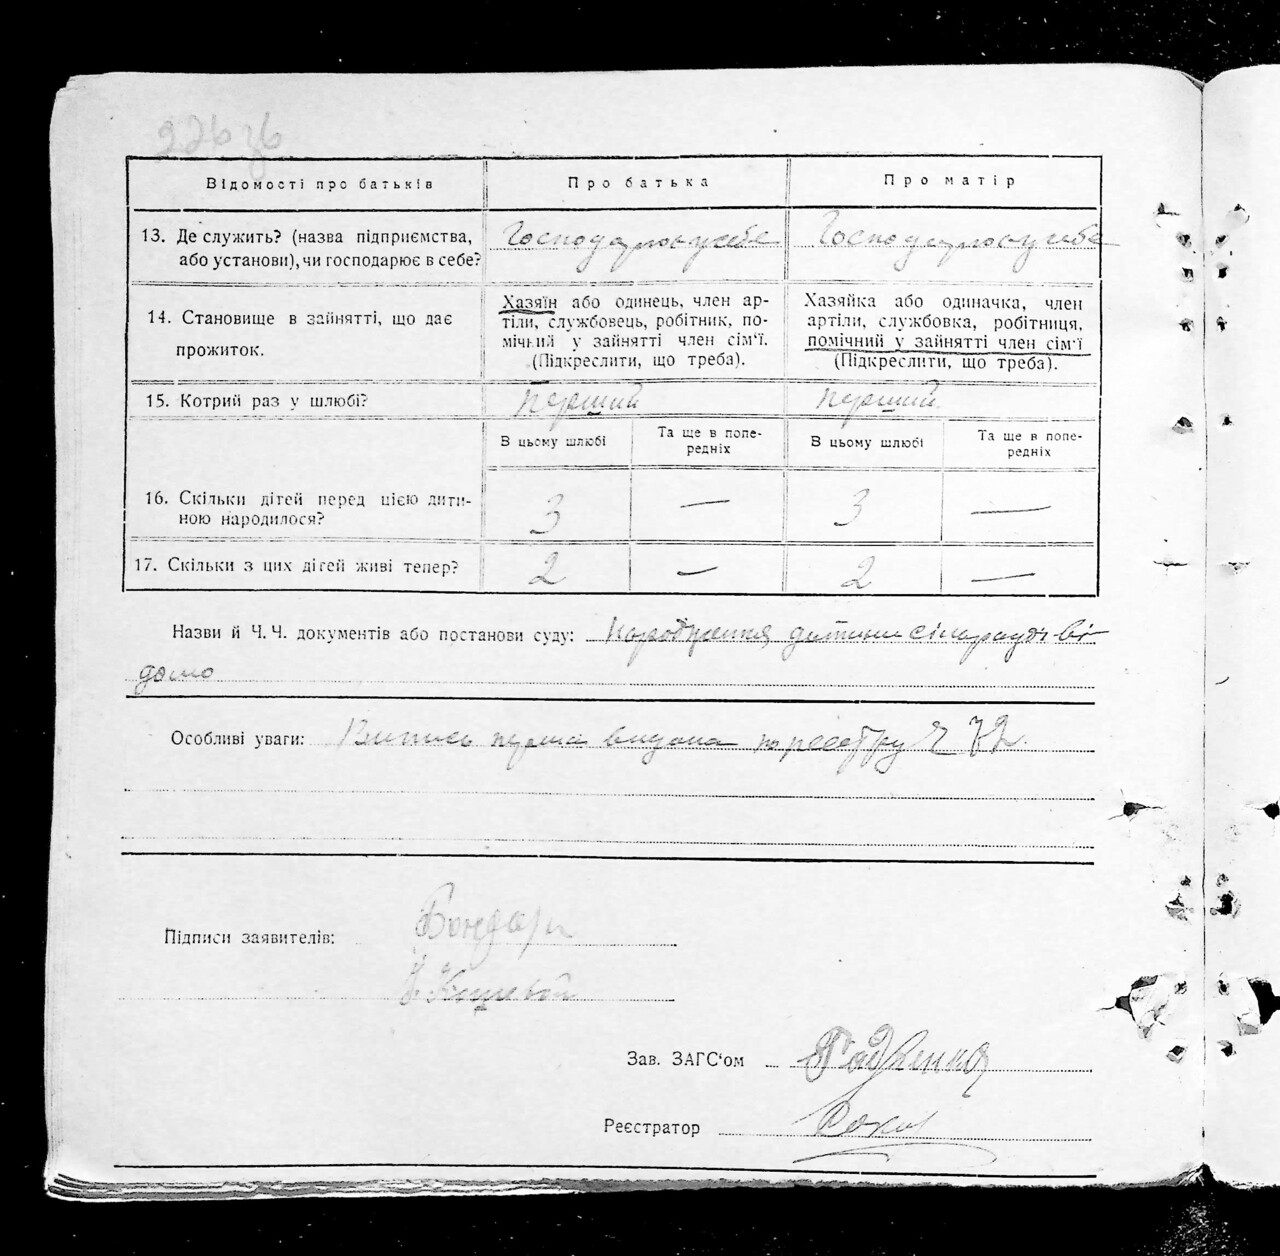 226 зб
Відомості про батьків
Про батька
Про матір
13. Де служить? (назва підприємства,
або установи), чи господарює в себе?
Господарює у себе
Господарює у себе
14. Становище в зайнятті, що дає
прожиток.
Хазяїн або одинець, член ар-
тіли, службовець, робітник, по-
мічний у зайнятті член сім'ї.
(Підкреслити, що треба).
Хазяйка або одиначка, член
артіли, службовка, робітниця,
помічний у зайнятті член сім'ї
(Підкреслити, що треба).
15. Котрий раз у шлюбі?
перший
перший
В цьому шлюбі
Та ще в попе-
редніх
В цьому шлюбі
Та ще в попе-
редніх
16. Скільки дітей перед цією дити-
ною народилося?
3 — 3 —
17. Скільки з цих дітей живі тепер?
2 — 2 —
Назви й Ч. Ч. документів або постанови суду: Народження дитини сільраді ві-
домо
Особливі уваги: Випись перша видана по реєстру Ч 72.
Підписи заявителів: Бондарь
Кошевой
Зав. ЗАГС'ом
Реєстратор